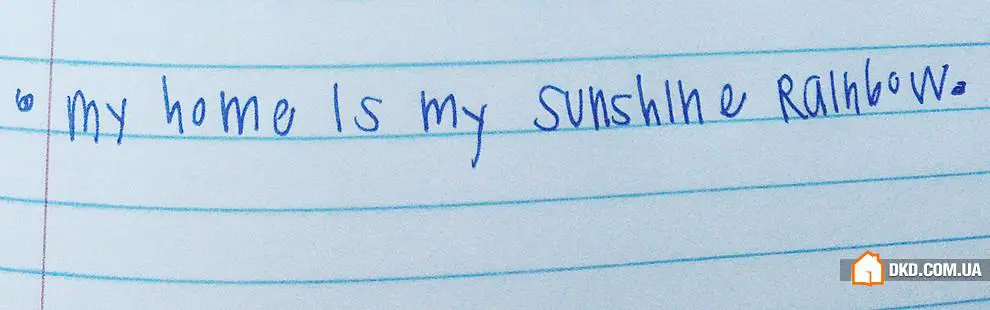 my home is my sunshine Rainbow.
DKD.COM.UA